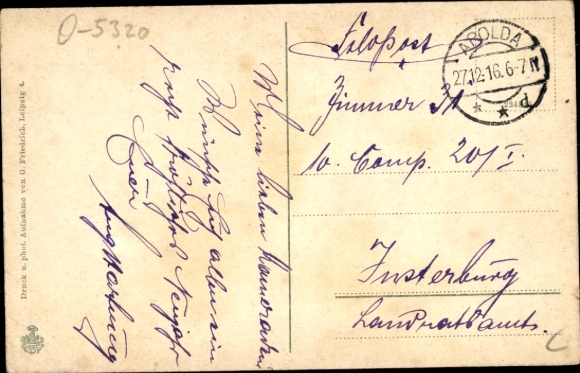 O-5320
Feldpost
APOLDA
27.12.16. 6-7 N
* * d
Zimmer 31
10. Comp. 20/I.
Insterburg
Landratsamt.
Meine lieben Kameraden!
Wünsche Euch allen ein
recht fröhliches Neujahr
Euer
Aug Hartung
Druck u. phot. Aufnahme von G. Friedrich, Leipzig 4.